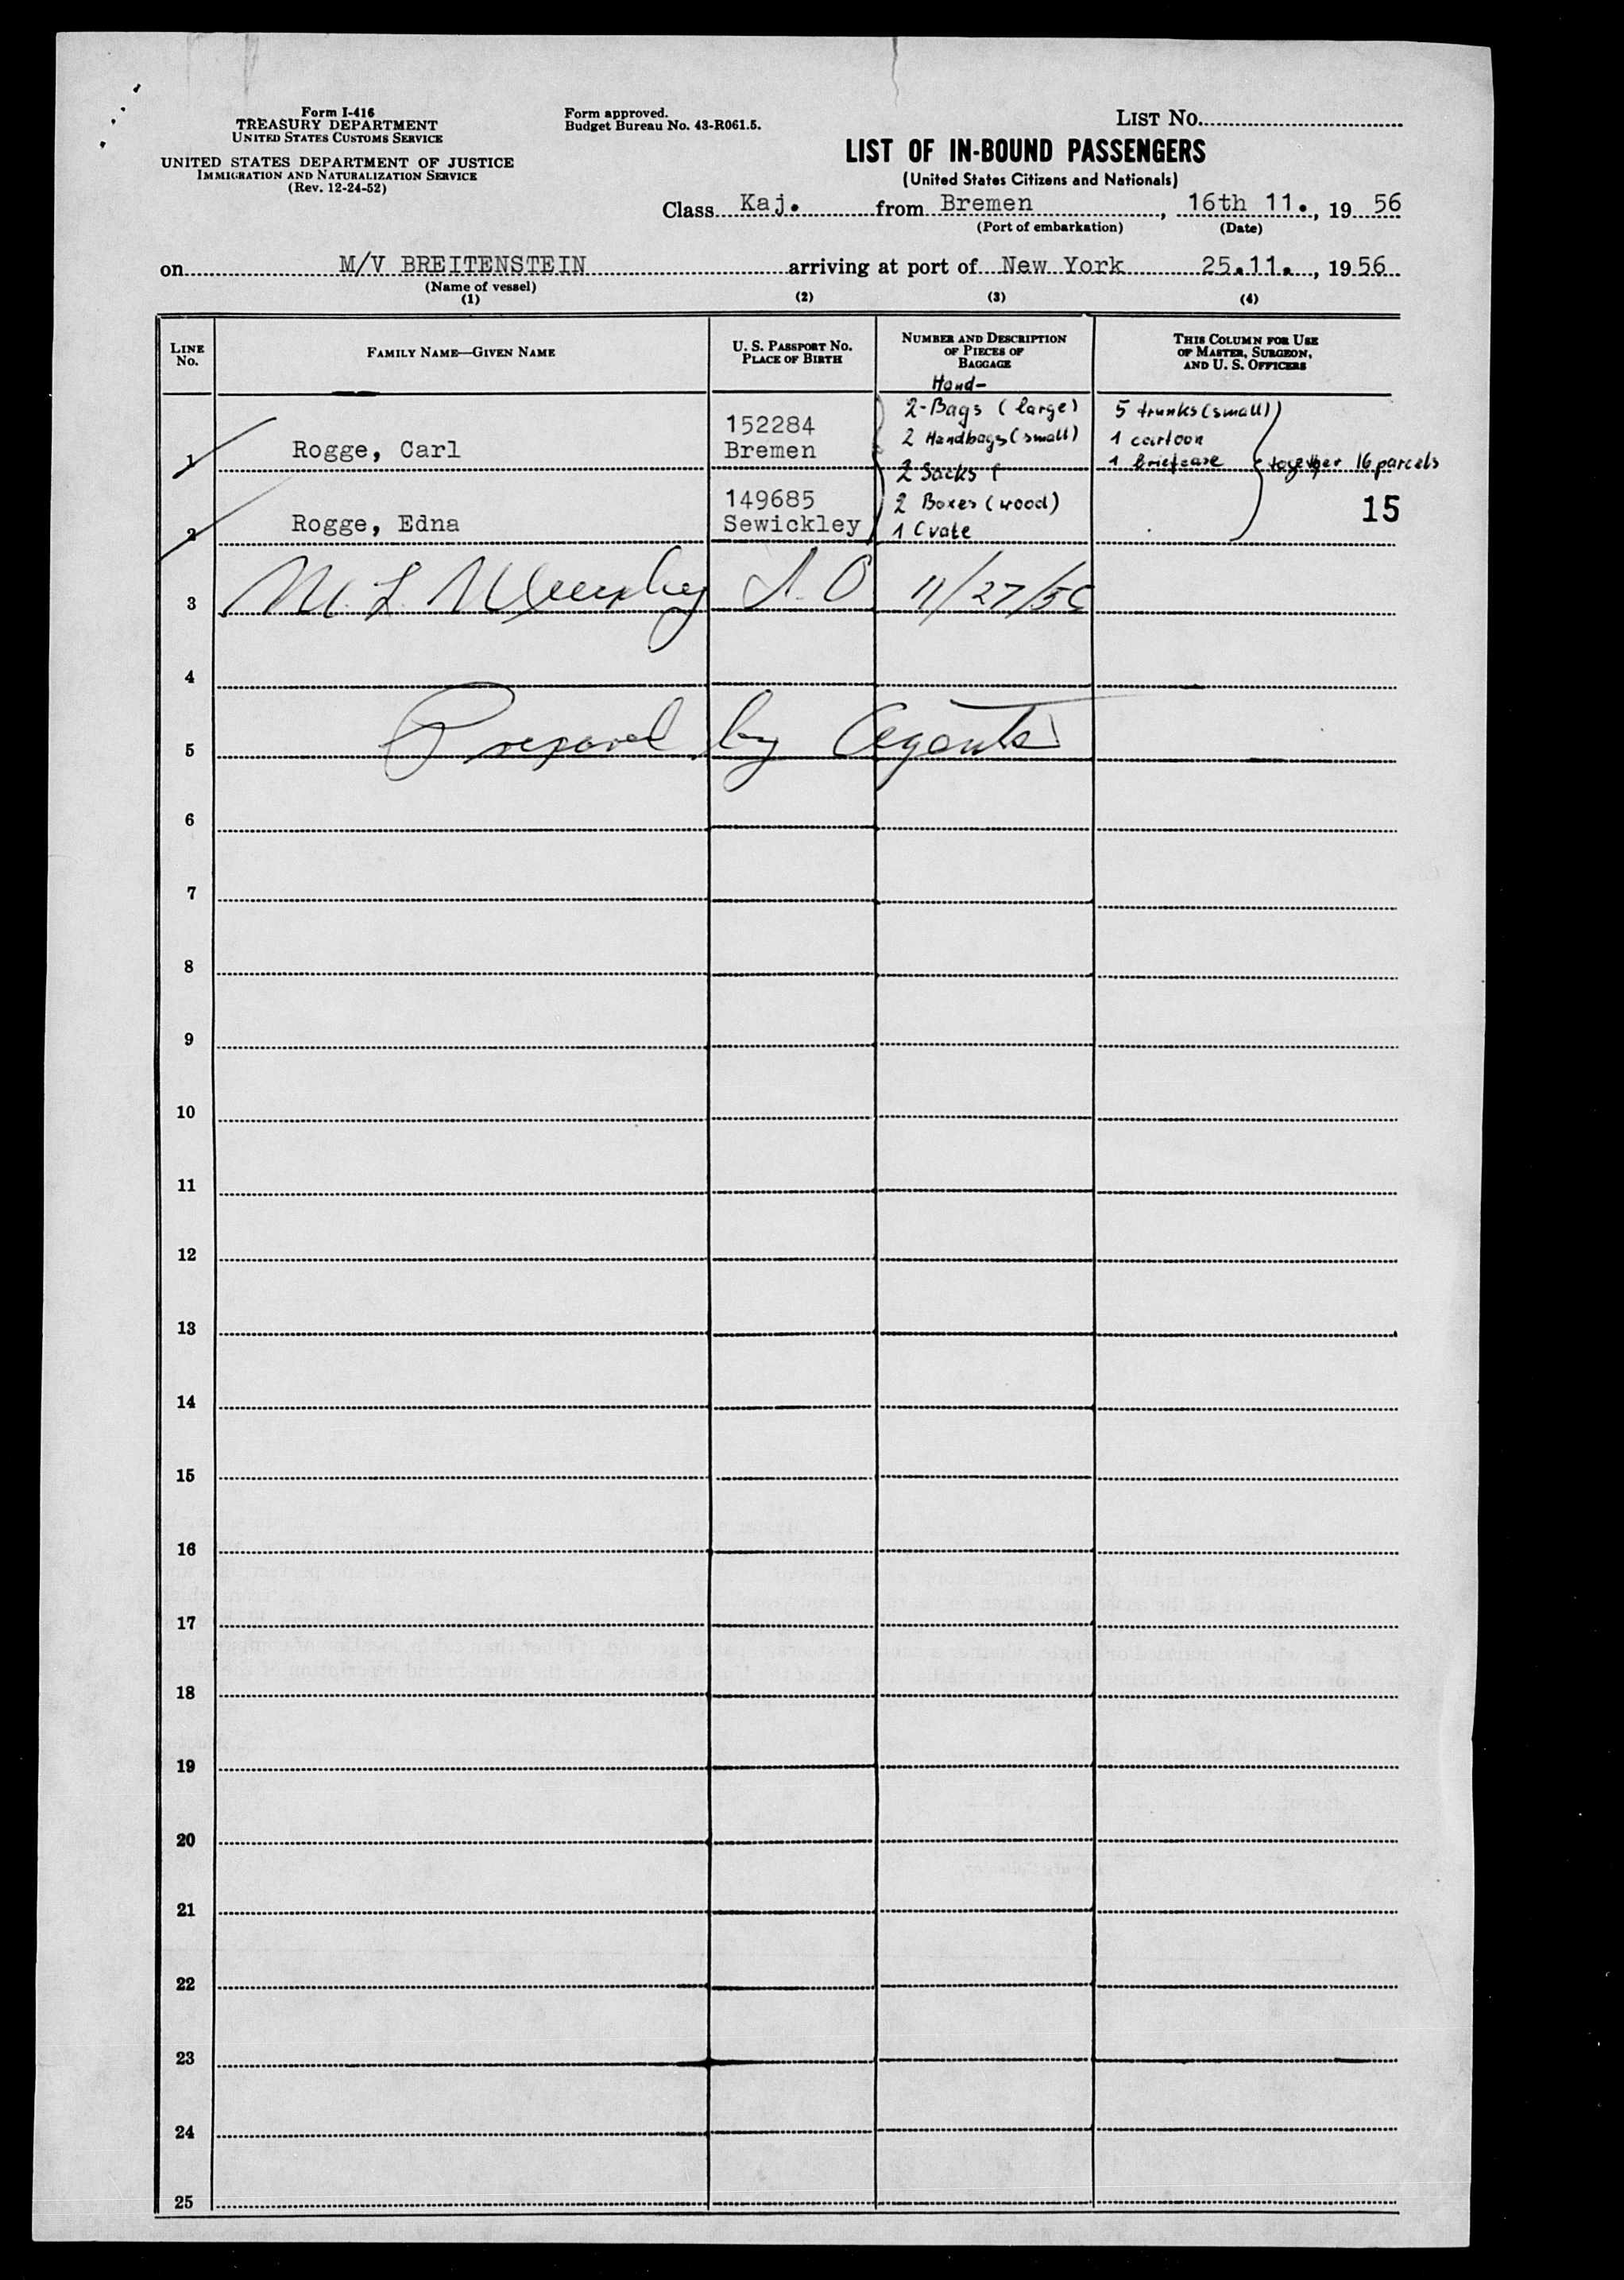 Form I-416
TREASURY DEPARTMENT
UNITED STATES CUSTOMS SERVICE
UNITED STATES DEPARTMENT OF JUSTICE
IMMIGRATION AND NATURALIZATION SERVICE
(Rev. 12-24-52)
Form approved.
Budget Bureau No. 43-R061.5.
LIST No.
LIST OF IN-BOUND PASSENGERS
(United States Citizens and Nationals)
Class Kaj. from Bremen, 16th 11., 19 56
(Port of embarkation) (Date)
on M/V BREITENSTEIN arriving at port of New York 25.11., 1956
(Name of vessel)
(1) (2) (3) (4)
LINE No.
FAMILY NAME—GIVEN NAME
U. S. PASSPORT No.
PLACE OF BIRTH
NUMBER AND DESCRIPTION
OF PIECES OF
BAGGAGE
THIS COLUMN FOR USE
OF MASTER, SURGEON,
AND U. S. OFFICERS
Hand-
2-Bags (large) 5 trunks (small)
152284 2 Handbags (small) 1 cartoon
1 Rogge, Carl Bremen 1 briefcase together 16 parcels
2 Sacks (
149685 2 Boxes (wood) 15
2 Rogge, Edna Sewickley 1 Crate
3 M. L. Murphy I. O 11/27/56
4
5 Prepared by Agents
6
7
8
9
10
11
12
13
14
15
16
17
18
19
20
21
22
23
24
25